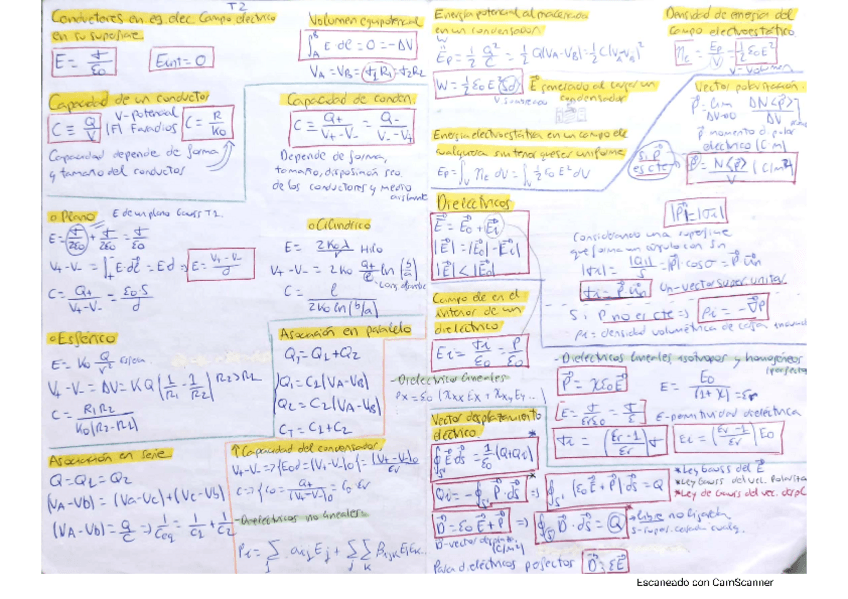 T2
Conductores en eq. elec. Campo eléctrico
en su superficie.
E = σ/ε0
Eint = 0
Volumen equipotencial
∫ E·dl = 0 = -ΔV
VA = VB =
Capacidad de un conductor
C ≡ Q/V
V-potencial
|F| Faradios
C = R/K0
Capacidad depende de forma
y tamaño del conductor
Capacidad de conden.
C ≡ Q+/(V+ - V-) = Q-/(V- - V+)
Depende de forma,
tamaño, disposición
de los conductores y medio
Plano
E de un plano Gauss T2.
E = σ/2ε0 + σ/2ε0 = σ/ε0
V+ - V- = ∫ E·dl = Ed ⇒ E = (V+ - V-)/d
C = Q+/(V+ - V-) = ε0S/d
Cilíndrico
E = 2K0λ/r Hilo
V+ - V- = 2K0 Q+/ℓ ln(b/a)
C = ℓ/(2K0 ln(b/a))
Esférico
E = K0 Q/r² Esfera.
V+ - V- = ΔV = KQ(1/R1 - 1/R2) R2>R1
C = R1R2/(K0(R2-R1))
Asociación en paralelo
QT = Q1 + Q2
Q1 = C1(VA-VB)
Q2 = C2(VA-VB)
CT = C1 + C2
Asociación en serie
Q = Q1 = Q2
(VA-Vb) = (Va-Vc)+(Vc-Vb)
(VA-Vb) = Q/C ⇒ 1/Ceq = 1/C1 + 1/C2
↑ Capacidad del condensador,
-Dieléctricos no lineales-
Pi = Σj αij Ej + Σj Σk βijk EjEk...
Energía potencial almacenada
en un condensador.
W
Ep = 1/2 Q²/C = 1/2 Q(VA-VB) = 1/2 C(VA-VB)²
W = 1/2 ε0 E² (Sd)
E generado al cargar un
condensador
Energía electrostática en un campo elec
cualquiera sin tener que ser uniforme
Ep = ∫V ηe dV = ∫V 1/2 ε0 E² dV
Densidad de energía del
campo electrostático
ηe = Ep/V = 1/2 ε0E²
V-volumen
Vector polarización.
P = lim ΔV→0 ΔN<p>/ΔV
p momento dipolar
eléctrico (C m)
Si P
es cte
P = N<p>/V (C/m²)
Dieléctricos
E = E0 + Ei
|E| = |E0| - |Ei|
|E| < |E0|
|P| = |σi|
Considerando una superficie
que forma un ángulo con Sn
|σi| = |Qi|/S = |P|·cosσ = P·un
σi = P·un
un-vector super. unitar
Si P no es cte ⇒ ρi = -∇P
ρi = densidad volumétrica de carga
Campo de en el
interior de un
dieléctrico
Ei = σi/ε0 = P/ε0
-Dieléctrico lineales-
Px = ε0 (χxx Ex + χxy Ey ...)
-Dieléctricos lineales isótropos y homogéneos
P = χε0E
E = E0/(1+χ) = εr
E = σ/εrε0 = σ/ε
ε-permitividad dieléctrica
σi = ((εr-1)/εr)σ
Ei = ((εr-1)/εr)E0
Vector desplazamiento
eléctrico.
∮ E ds = 1/ε0 (Q+Qi)
Qi = -∮ P·ds ⇒ ∮ (ε0E + P) ds = Q
*Ley Gauss del E
*Ley Gauss del vec.
*Ley de Gauss del vec. despl
D = ε0E + P ⇒ ∮ D·ds = Q
*Libre no ligada
D-vector desplaz.
(C/m²)
Para dieléctricos perfectos D = εE
Escaneado con CamScanner